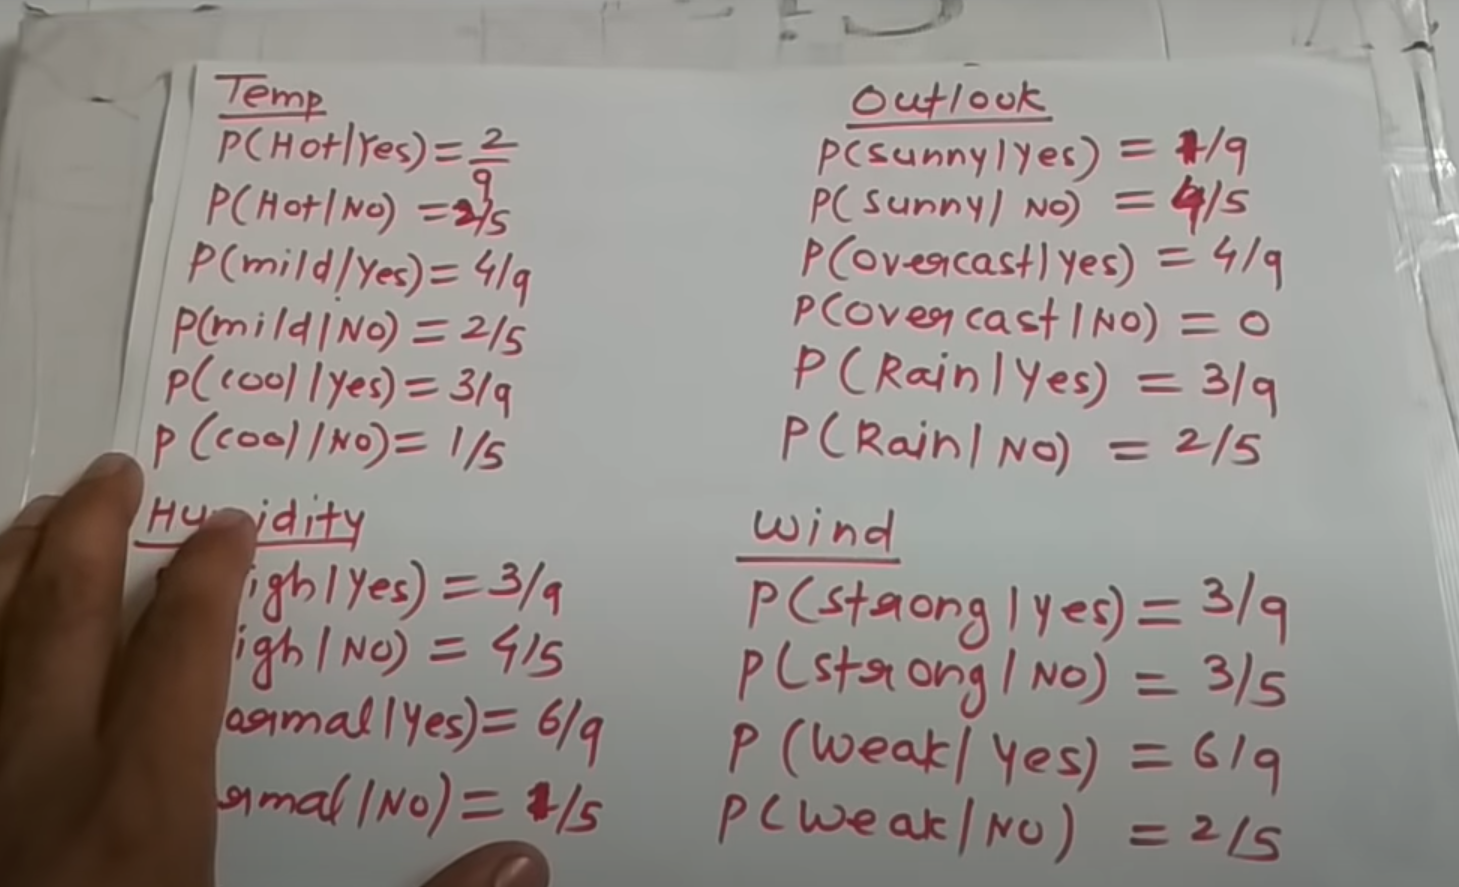 Temp
P(Hot/Yes) = 2/9
P(Hot/NO) = 2/5
P(mild/Yes) = 4/9
P(mild/NO) = 2/5
P(cool/Yes) = 3/9
P(cool/NO) = 1/5
Humidity
igh/Yes) = 3/9
igh/NO) = 4/5
ormal/Yes) = 6/9
rmal/NO) = 1/5
Outlook
P(sunny/Yes) = /9
P(sunny/NO) = 4/5
P(overcast/yes) = 4/9
P(overcast/NO) = 0
P(Rain/Yes) = 3/9
P(Rain/NO) = 2/5
Wind
P(strong/yes) = 3/9
P(strong/NO) = 3/5
P(weak/Yes) = 6/9
P(weak/NO) = 2/5